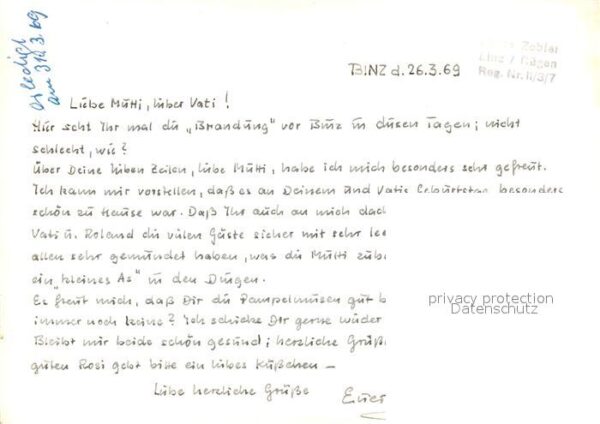 erledigt
am 31.3.69
Zobler
Binz / Rügen
Reg. Nr. II/3/7
BINZ d. 26.3.69
Liebe Mutti, lieber Vati!
Hier seht Ihr mal die „Brandung" vor Binz in diesen Tagen; nicht
schlecht, wie?
Über Deine lieben Zeilen, liebe Mutti, habe ich mich besonders sehr gefreut.
Ich kann mir vorstellen, daß es an Deinem und Vatis Geburtstag besonders
schön zu Hause war. Daß Ihr auch an mich dach
Vati u. Roland die vielen Gäste sicher mit sehr
allen sehr gemundet haben, was die Mutti zube
ein „kleines As" in den Dingen.
Es freut mich, daß Dir die Pampelmusen gut b
immer noch keine? Ich schicke Dir gerne wieder
Bleibt mir beide schön gesund; herzliche Grüß
guten Rosi gebt bitte ein liebes Küßchen –
Liebe herzliche Grüße
Euer
privacy protection
Datenschutz